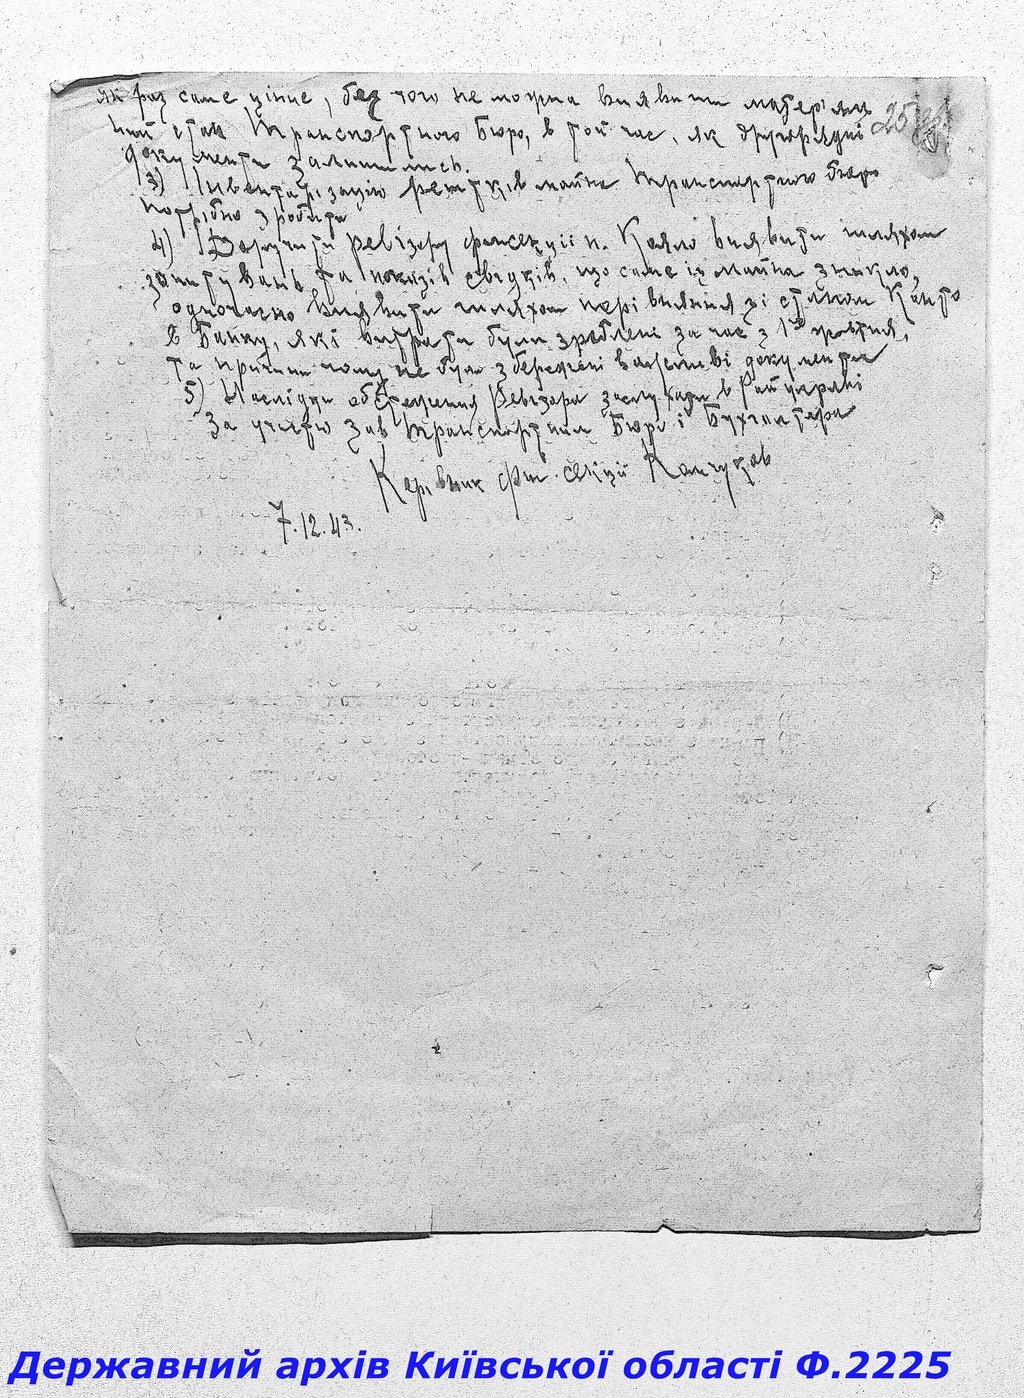 як раз саме цінне, без чого не можна виявити матерʼяль
ний стан Транспортного Бюро, в той час, як другорядні
документи залишились.
3) Інвентарізацію рештків майна Транспортного бюро
потрібно зробити
4) Доручити ревізору фінсекції п. Кояло виявити шляхом
запитувань та показів свідків, що саме із майна зникло,
одночасно виявити шляхом перівняння зі станом Конто
в Банку, які витрати були зроблені за час з 1го жовтня,
та причини чому не було збережені важливі документи
5) Наслідки обстеження Ревізора заслухати в Райуправі
За участю Зав Транспортним Бюро і Бухгалтера
Керівник фін. секції
7.12.43.
25
Державний архів Київської області Ф.2225